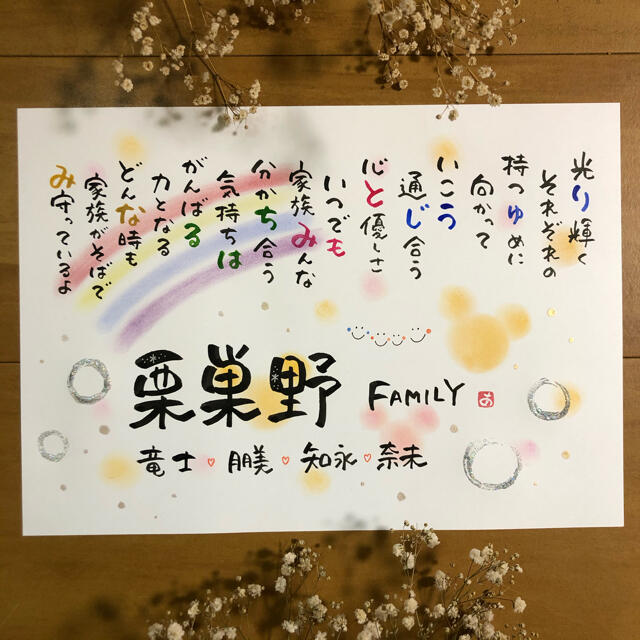 光り輝く
それぞれの
持つゆめに
向かって
いこう
通じ合う
心と優しさ
いつでも
家族みんな
分かち合う
気持ちは
がんばる
力となる
どんな時も
家族がそばで
み守っているよ
栗巣野 FAMILY
あ
竜士♡朋美♡知永♡奈未